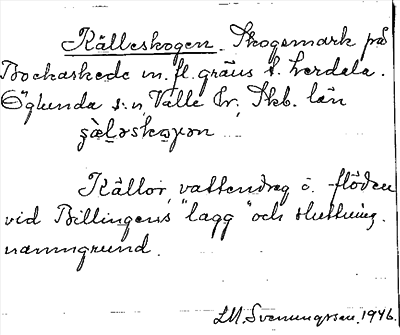 Källeskogen. Skogsmark på
Bockaskede m. fl. gräns t. Lerdala.
Öglunda s:n, Valle hr, Skb. län
Källor, vattendrag o. flöden
vid Billingens "lagg" och sluttning.
namngrund.
LM. Svenungsson. 1946.